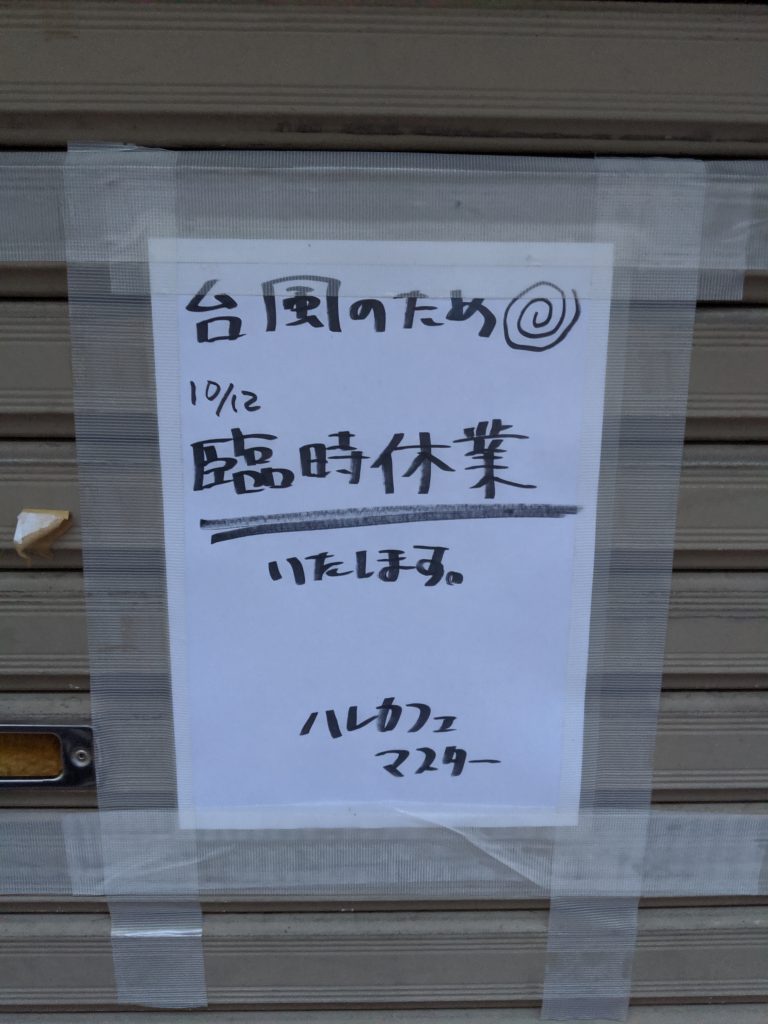 台風のため
10/12
臨時休業
いたします。
ハレカフェ
マスター